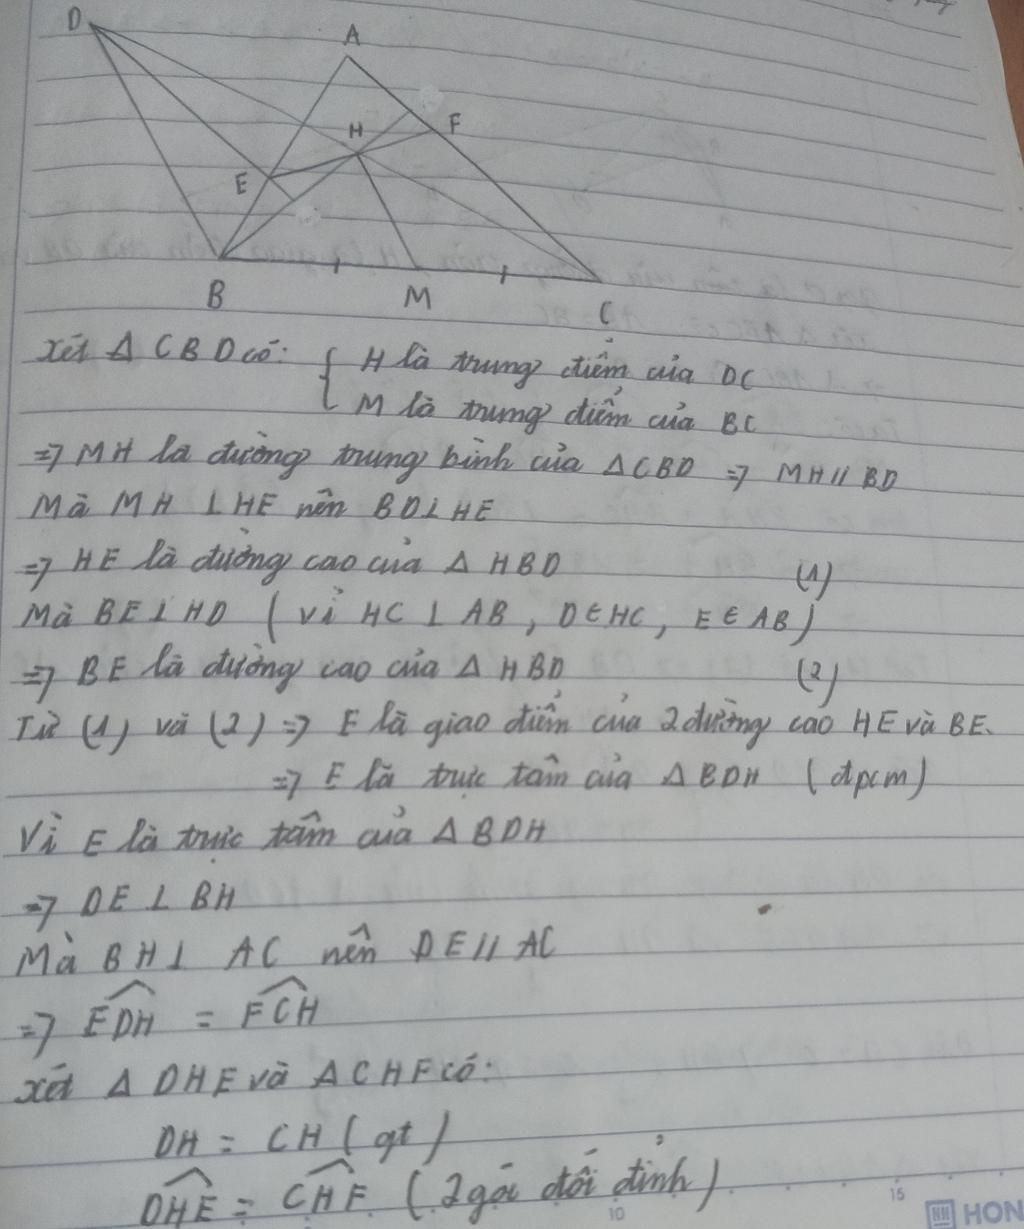 D
A
H
F
E
B
M
C
Xét Δ CBD có: { H là trung điểm của DC
M là trung điểm của BC
=> MH là đường trung bình của ΔCBD => MH // BD
Mà MH ⊥ HE nên BD ⊥ HE
=> HE là đường cao của Δ HBD (1)
Mà BE ⊥ HD ( vì HC ⊥ AB , D ∈ HC , E ∈ AB )
=> BE là đường cao của Δ HBD (2)
Từ (1) và (2) => E là giao điểm của 2 đường cao HE và BE.
=> E là trực tâm của Δ BDH ( đpcm )
Vì E là trực tâm của Δ BDH
=> DE ⊥ BH
Mà BH ⊥ AC nên DE // AC
=> \widehat{EDH} = \widehat{FCH}
Xét Δ DHE và Δ CHF có:
DH = CH ( gt )
\widehat{DHE} = \widehat{CHF} ( 2 góc đối đỉnh )
10
15
HON